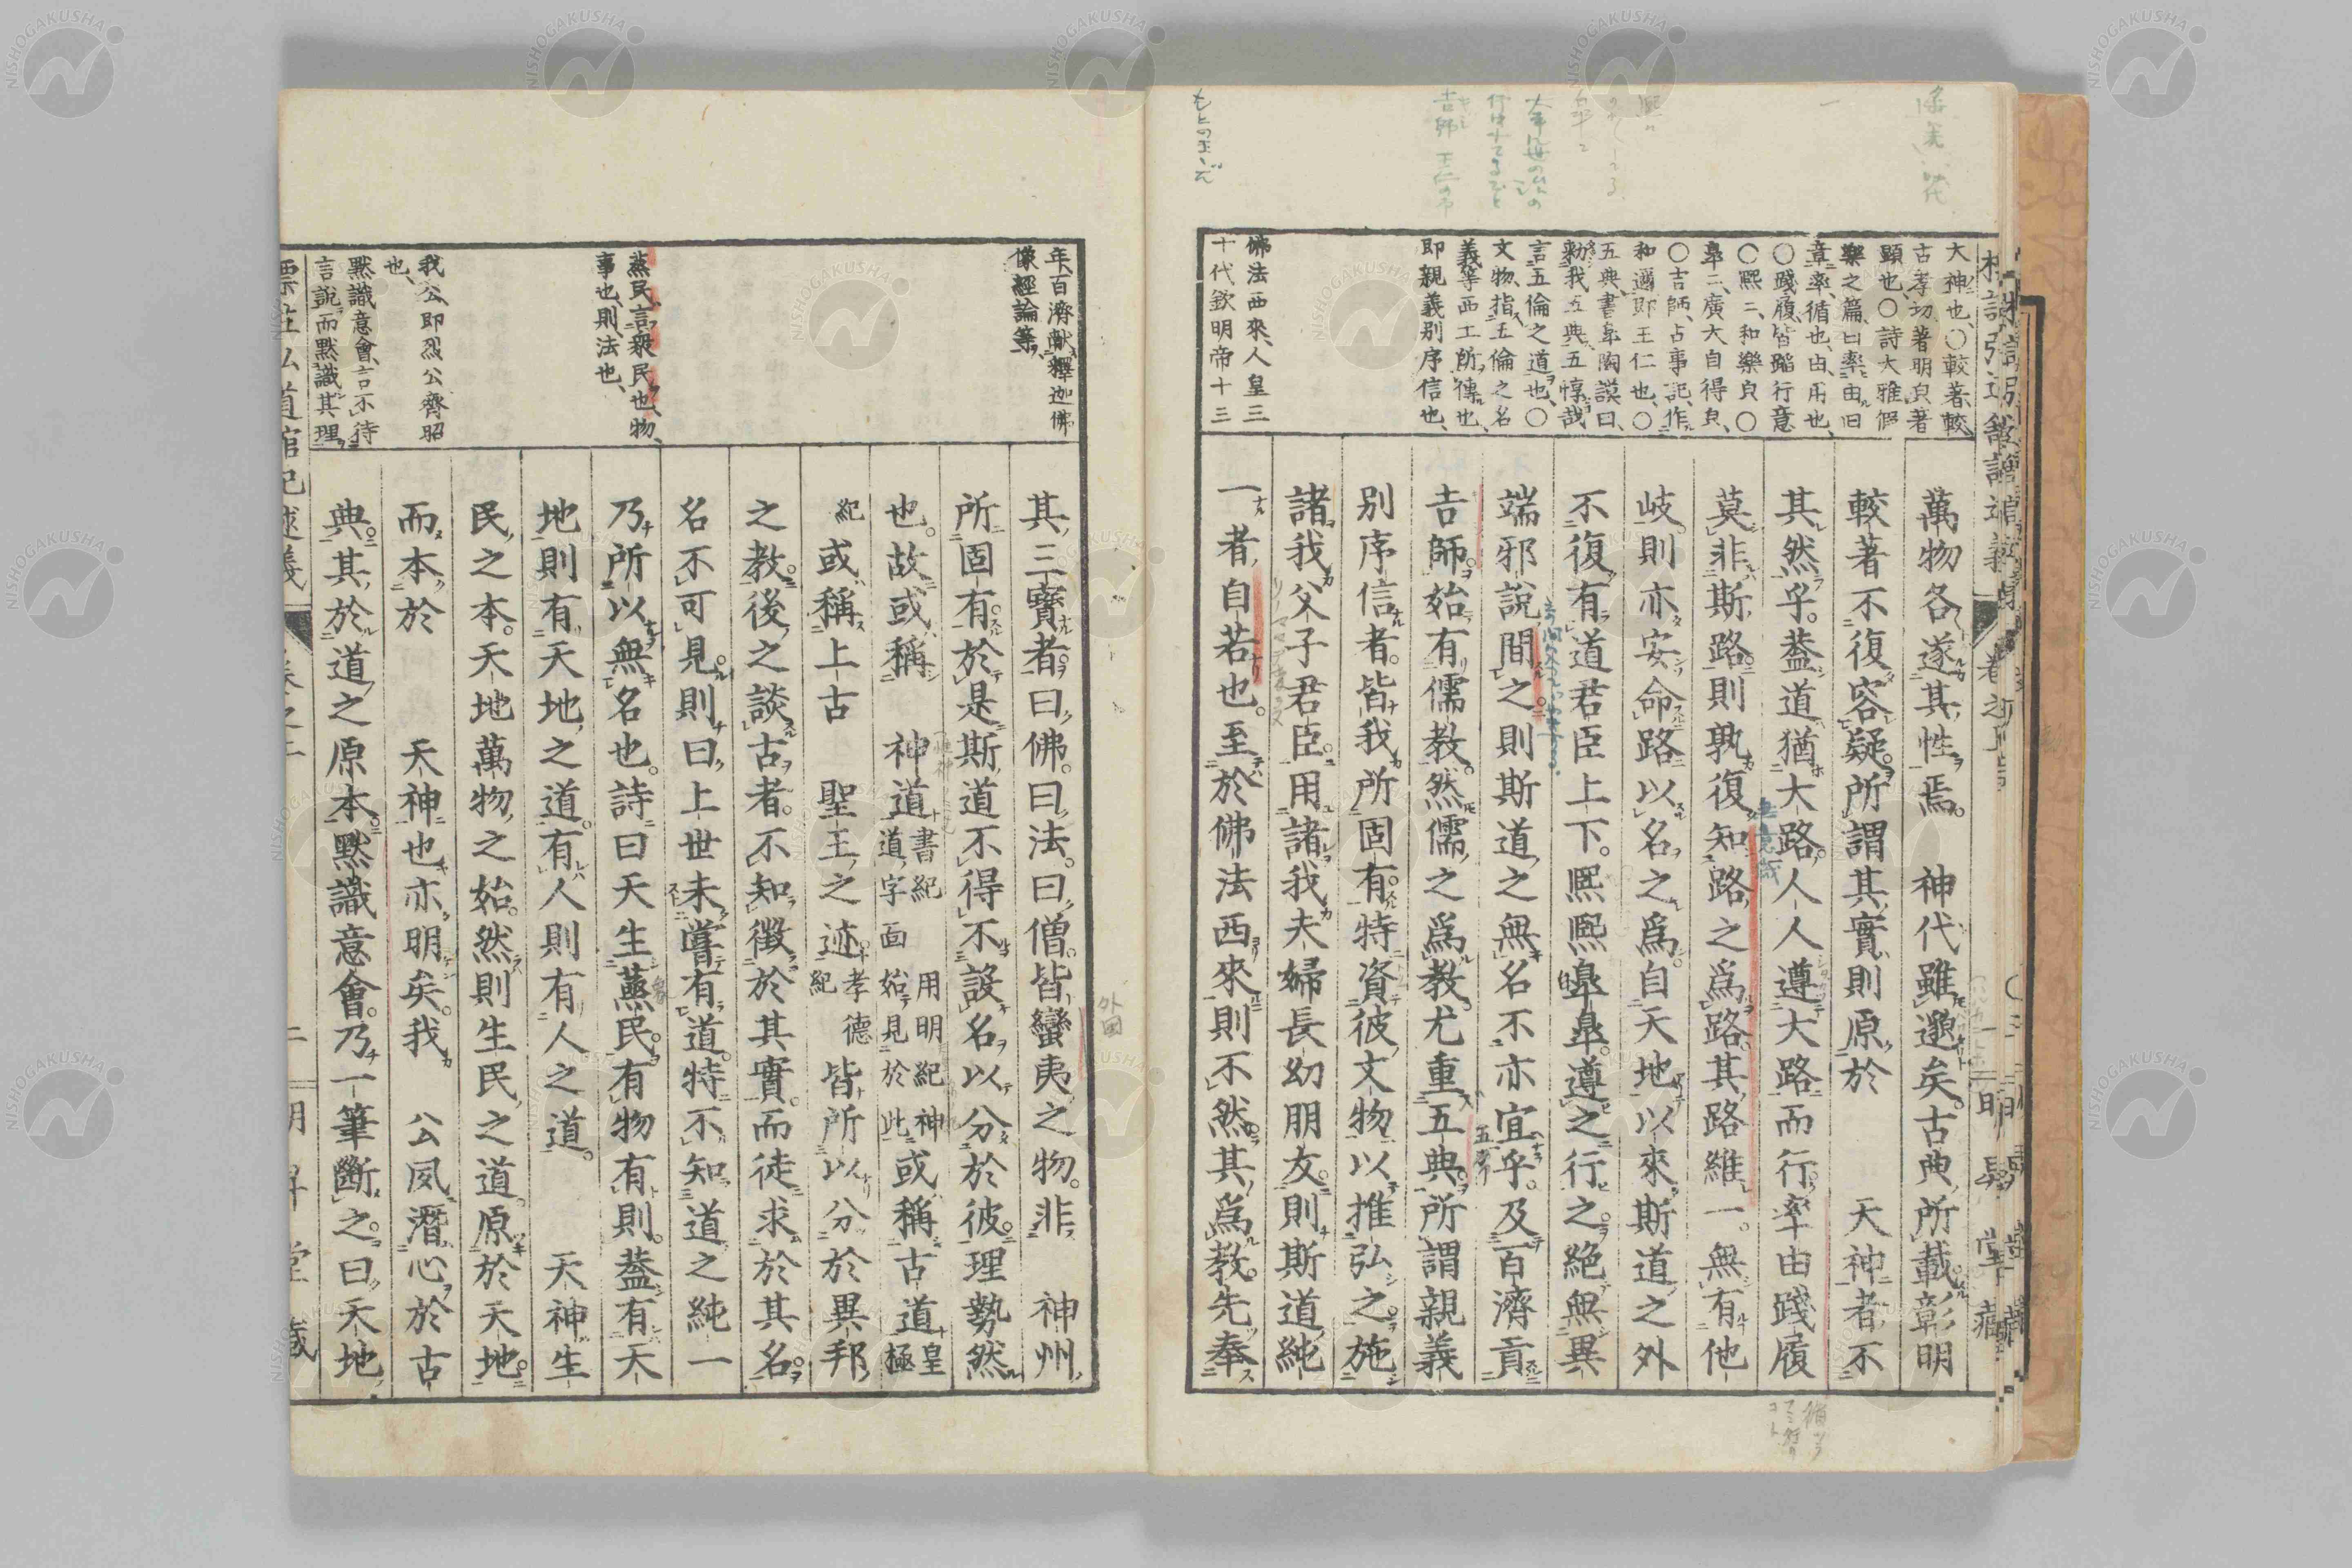 大神也、〇較著、較
古孝切著明皃著
顯也〇詩大雅假
樂之篇、曰率由旧
章率、循也、由、用也、
〇踐履、皆蹈行意
〇熙二、和樂皃、〇
皐二、廣大自得皃、
〇吉師、古事記、作
和邇即王仁也、〇
五典、書皐陶謨曰、
勑我五典五惇哉
言五倫之道也、〇
文物、指五倫之名
義等西工所傳也、
即親義別序信也、
佛法西來、人皇三
十代欽明帝十三
萬物各遂其性焉。神代雖邈矣。古典所載彰明
較著不復容疑。所謂其實、則原於 天神者、不
其然乎。蓋道猶大路。人人遵大路而行。率由踐履
莫非斯路。則孰復知路之爲路。其路維一。無有他
岐。則亦安命路以名之爲。自天地以來斯道之外
不復有道君臣上下。熙熙皐皐。遵之行之。絶無異
端邪說間之。則斯道之無名不亦宜乎。及百濟貢
吉師。始有儒教。然儒之爲教。尤重五典。所謂親義
別序信者。皆我所固有。特資彼文物以推弘之。施
諸我父子君臣。用諸我夫婦長幼朋友。則斯道純
一者、自若也。至於佛法西來、則不然。其爲教。先奉
年、百濟獻釋迦佛
像經論等、
蒸民、言衆民也、物、
事也、則、法也、
我公、即烈公齊昭
也、
默識意會、言不待
言說而默識其理、
其三寶者。曰佛。曰法。曰僧。皆蠻夷之物。非 神州
所固有。於是斯道不得不設名以分於彼。理勢然
也。故或稱 神道書紀道字面用明紀神始見於此或稱古道皇極
紀或稱上古 聖王之迹孝德紀皆所以分於異邦
之教。後之談古者。不知徵於其實。而徒求於其名。
名不可見。則曰上世未嘗有道。特不知道之純一
乃所以無名也。詩曰天生蒸民。有物有則。蓋有天
地則有天地之道。有人則有人之道。 天神生
民之本。天地萬物之始。然則生民之道。原於天地。
而本於 天神也亦明矣。我 公夙潛心於古
典。其於道之原本。默識意會。乃一筆斷之。曰天地